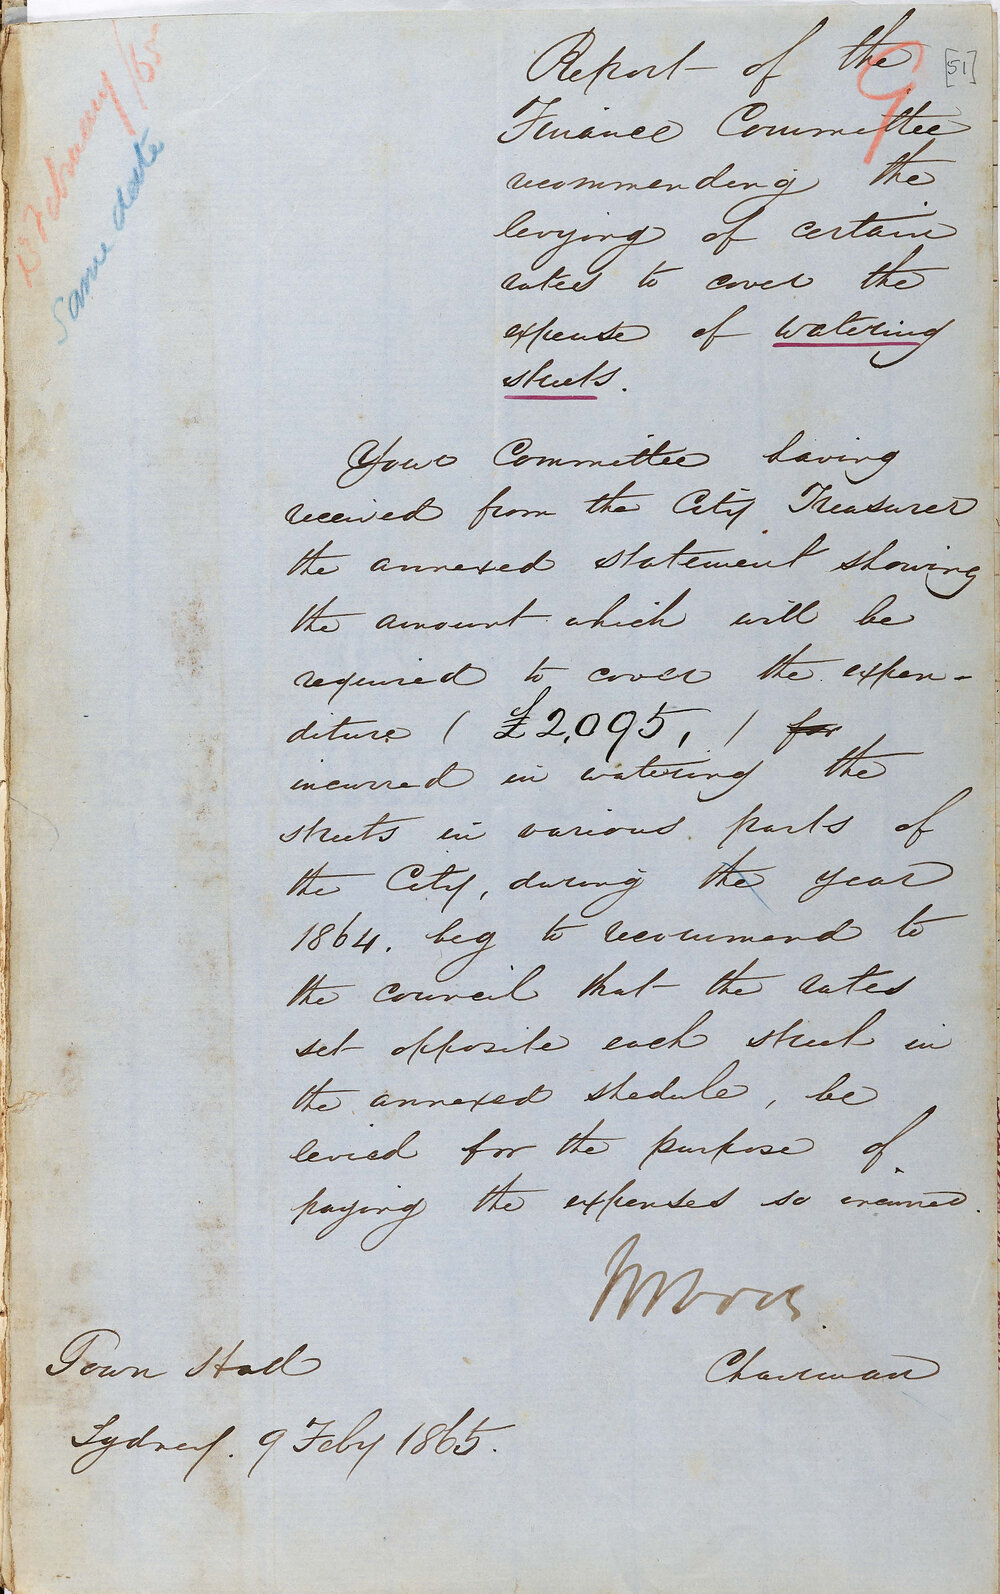 13 February/65
same date
G
[51]
Report of the
Finance Committee
recommending the
levying of certain
rates to cover the
expense of watering
streets.
Your Committee having
received from the City Treasurer
the annexed statement showing
the amount which will be
required to cover the expen-
diture ( £2,095, ) for
incurred in watering the
streets in various parts of
the City, during the year
1864. beg to recommend to
the council that the rates
set opposite each street in
the annexed shedule, be
levied for the purpose of
paying the expenses so incurred.
Chairman
Town Hall
Sydney. 9 Feby 1865.